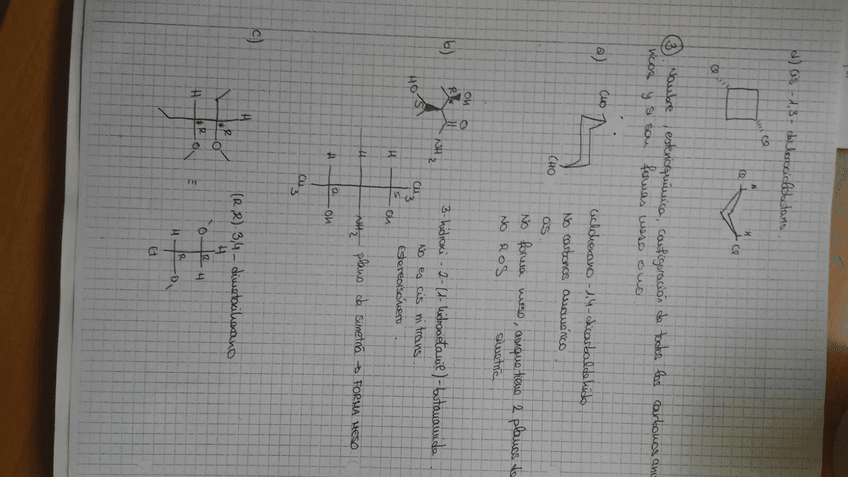 d) Cis -1,3- diclorociclobutano.
Cl
Cl
Cl
H
H
Cl
③ Nombre, estereoquímica, configuración de todos los carbonos
y si son formas meso o no:
a)
CHO
CHO
ciclohexano -1,4-dicarbaldehído
No carbonos
OS.
No forma meso, aunque tiene 2 planos de
simetría.
No R o S
b)
HO
S
R
OH
O
NH2
3-hidroxi-2-(1-hidroxietanil)-butanamida.
No es cis ni trans.
Estereoisómero.
H
H
H
CH3
CH3
R
S
OH
NH2
OH
plano de simetría → FORMA MESO
c)
H
H
R
R
O
O
=
(R,R) 3,4-dimetoxihexano
Et
H
R
O
O
R
H